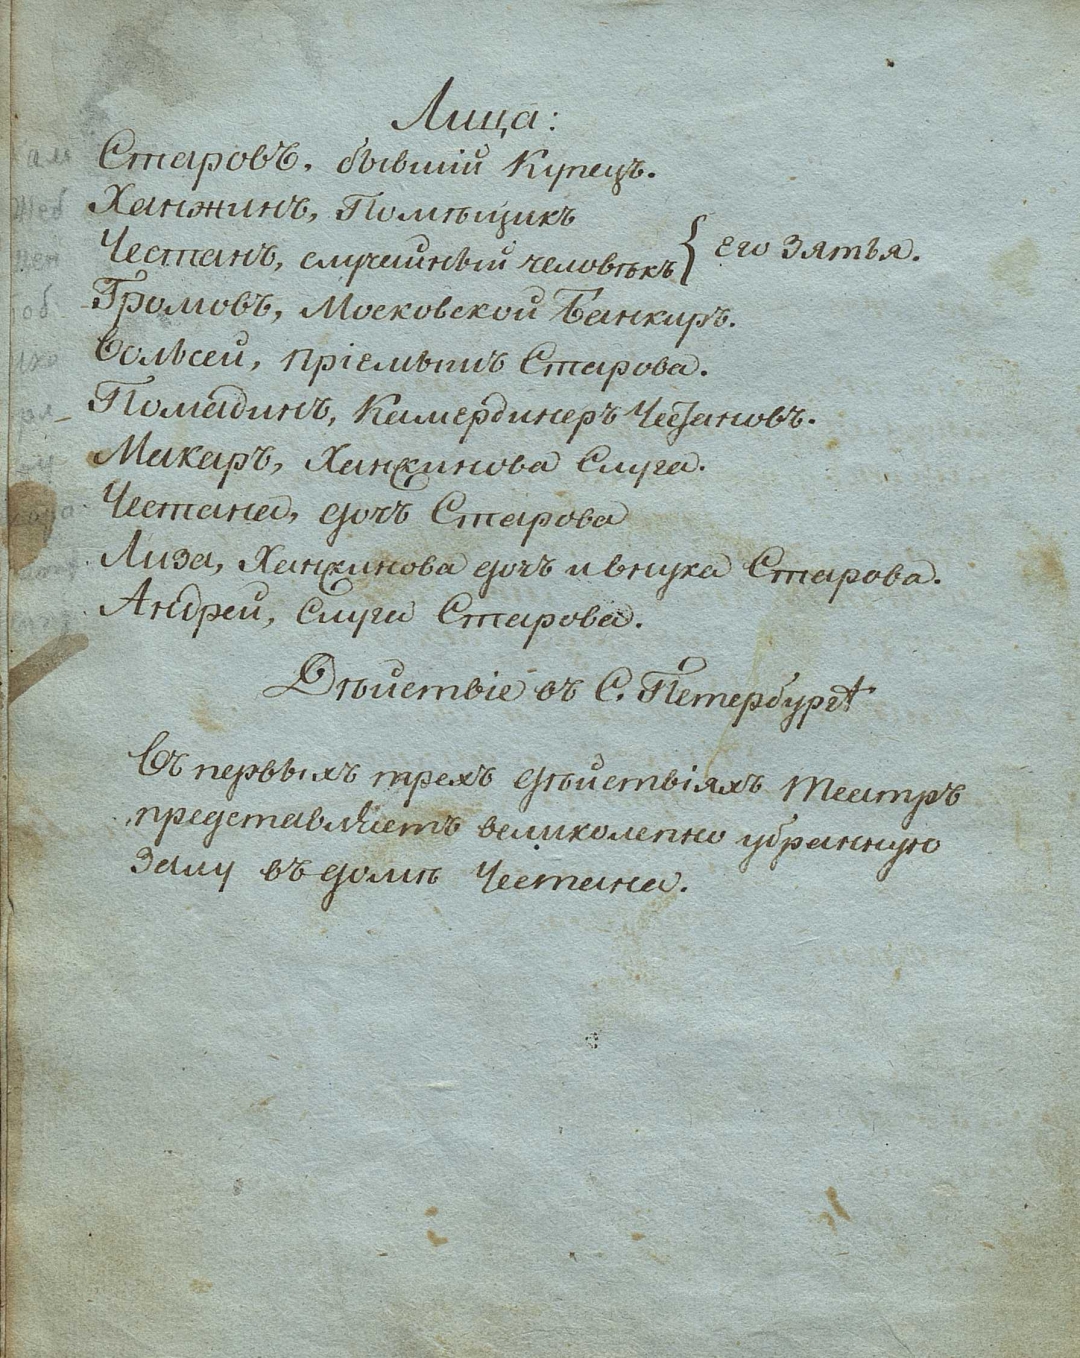 Лица:
Старовъ, бывшій Купецъ.
Ханжинъ, Помѣщикъ
Честанъ, случайный человѣкъ { его Зятья.
Громовъ, Московской Банкиръ.
Вольсей, пріемышъ Старова.
Помадинъ, Камердинеръ Честановъ.
Макаръ, Ханжинова Слуга.
Честана, дочь Старова
Лиза, Ханжинова дочь и внука Старова.
Андрей, Слуга Старова.
Дѣйствіе въ С. Петербургѣ
Въ первыхъ трехъ дѣйствіяхъ Театръ
представляетъ великолепно убранную
Залу въ домѣ Честана.